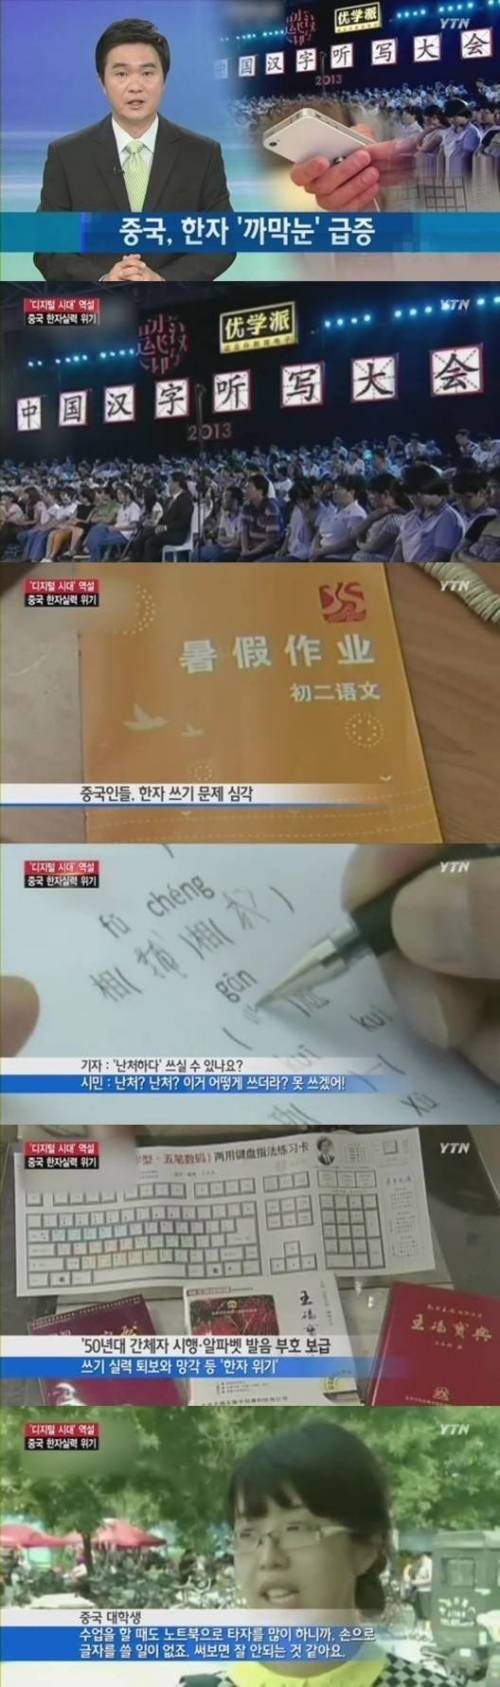 优学派
YTN
中国汉字听写大会
2013
중국, 한자 '까막눈' 급증
'디지털 시대' 역설
중국 한자실력 위기
YTN
优学派
中国汉字听写大会
2013
'디지털 시대' 역설
중국 한자실력 위기
YTN
暑假作业
初二语文
중국인들, 한자 쓰기 문제 심각
'디지털 시대' 역설
중국 한자실력 위기
YTN
fǔ chéng
相(辅)相(
gān
kuī
기자 : '난처하다' 쓰실 수 있나요?
시민 : 난처? 난처? 이거 어떻게 쓰더라? 못 쓰겠어!
'디지털 시대' 역설
중국 한자실력 위기
YTN
型·五笔数码）两用键盘指法练习卡
'50년대 간체자 시행·알파벳 발음 부호 보급
쓰기 실력 퇴보와 망각 등 '한자 위기'
'디지털 시대' 역설
중국 한자실력 위기
YTN
중국 대학생
수업을 할 때도 노트북으로 타자를 많이 하니까, 손으로
글자를 쓸 일이 없죠. 써보면 잘 안되는 것 같아요.